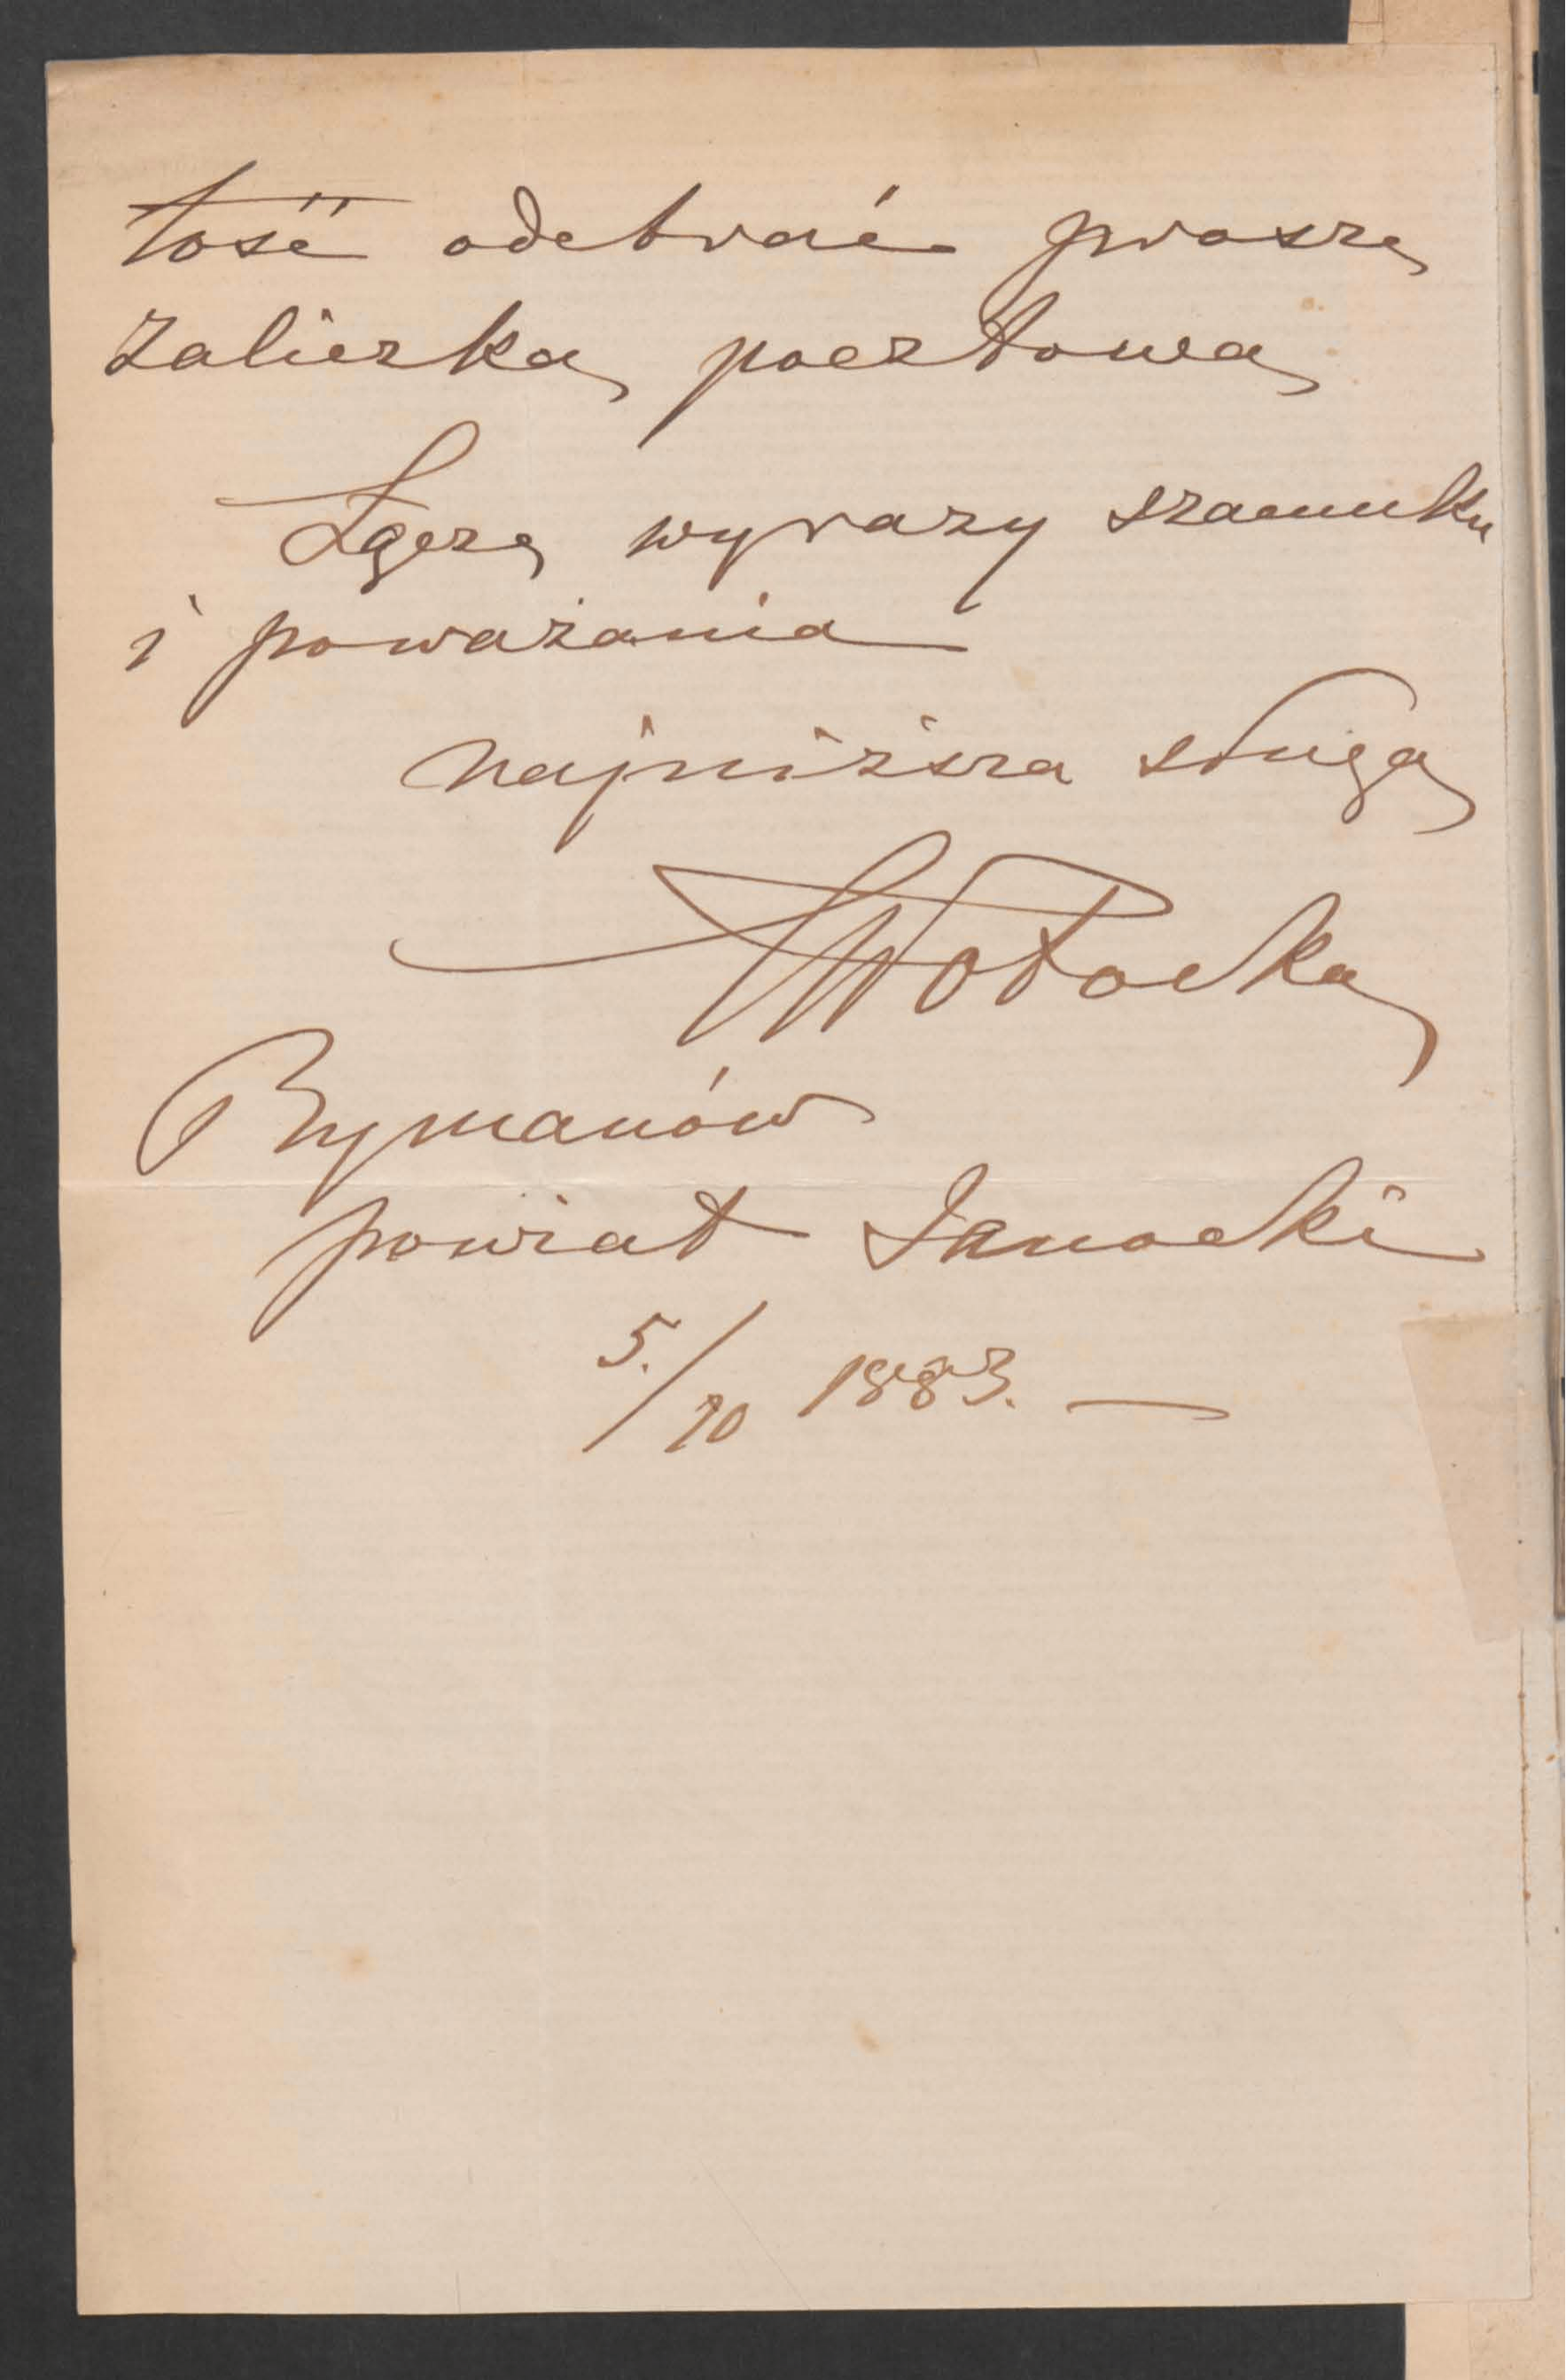 tość odebrać proszę
zaliczką pocztową
Łączę wyrazy szacunku
i poważania
najniższa sługa
Potocka
Rymanów
powiat Sanocki
5./10 1883. —